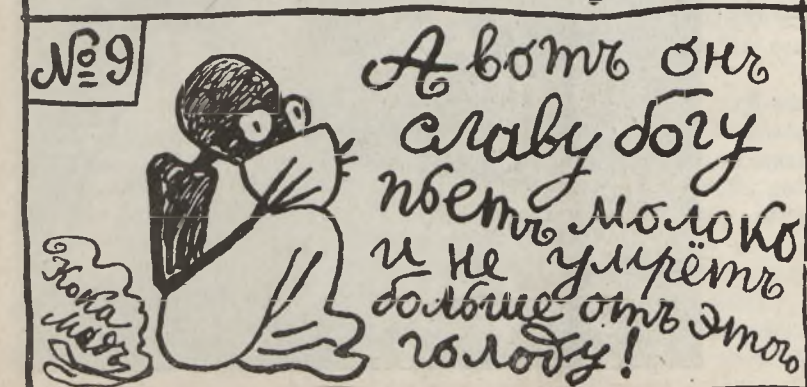 № 9
А вотъ онъ
славу богу
пьетъ молоко
и не умрётъ
больше отъ этого
голоду!
Кока